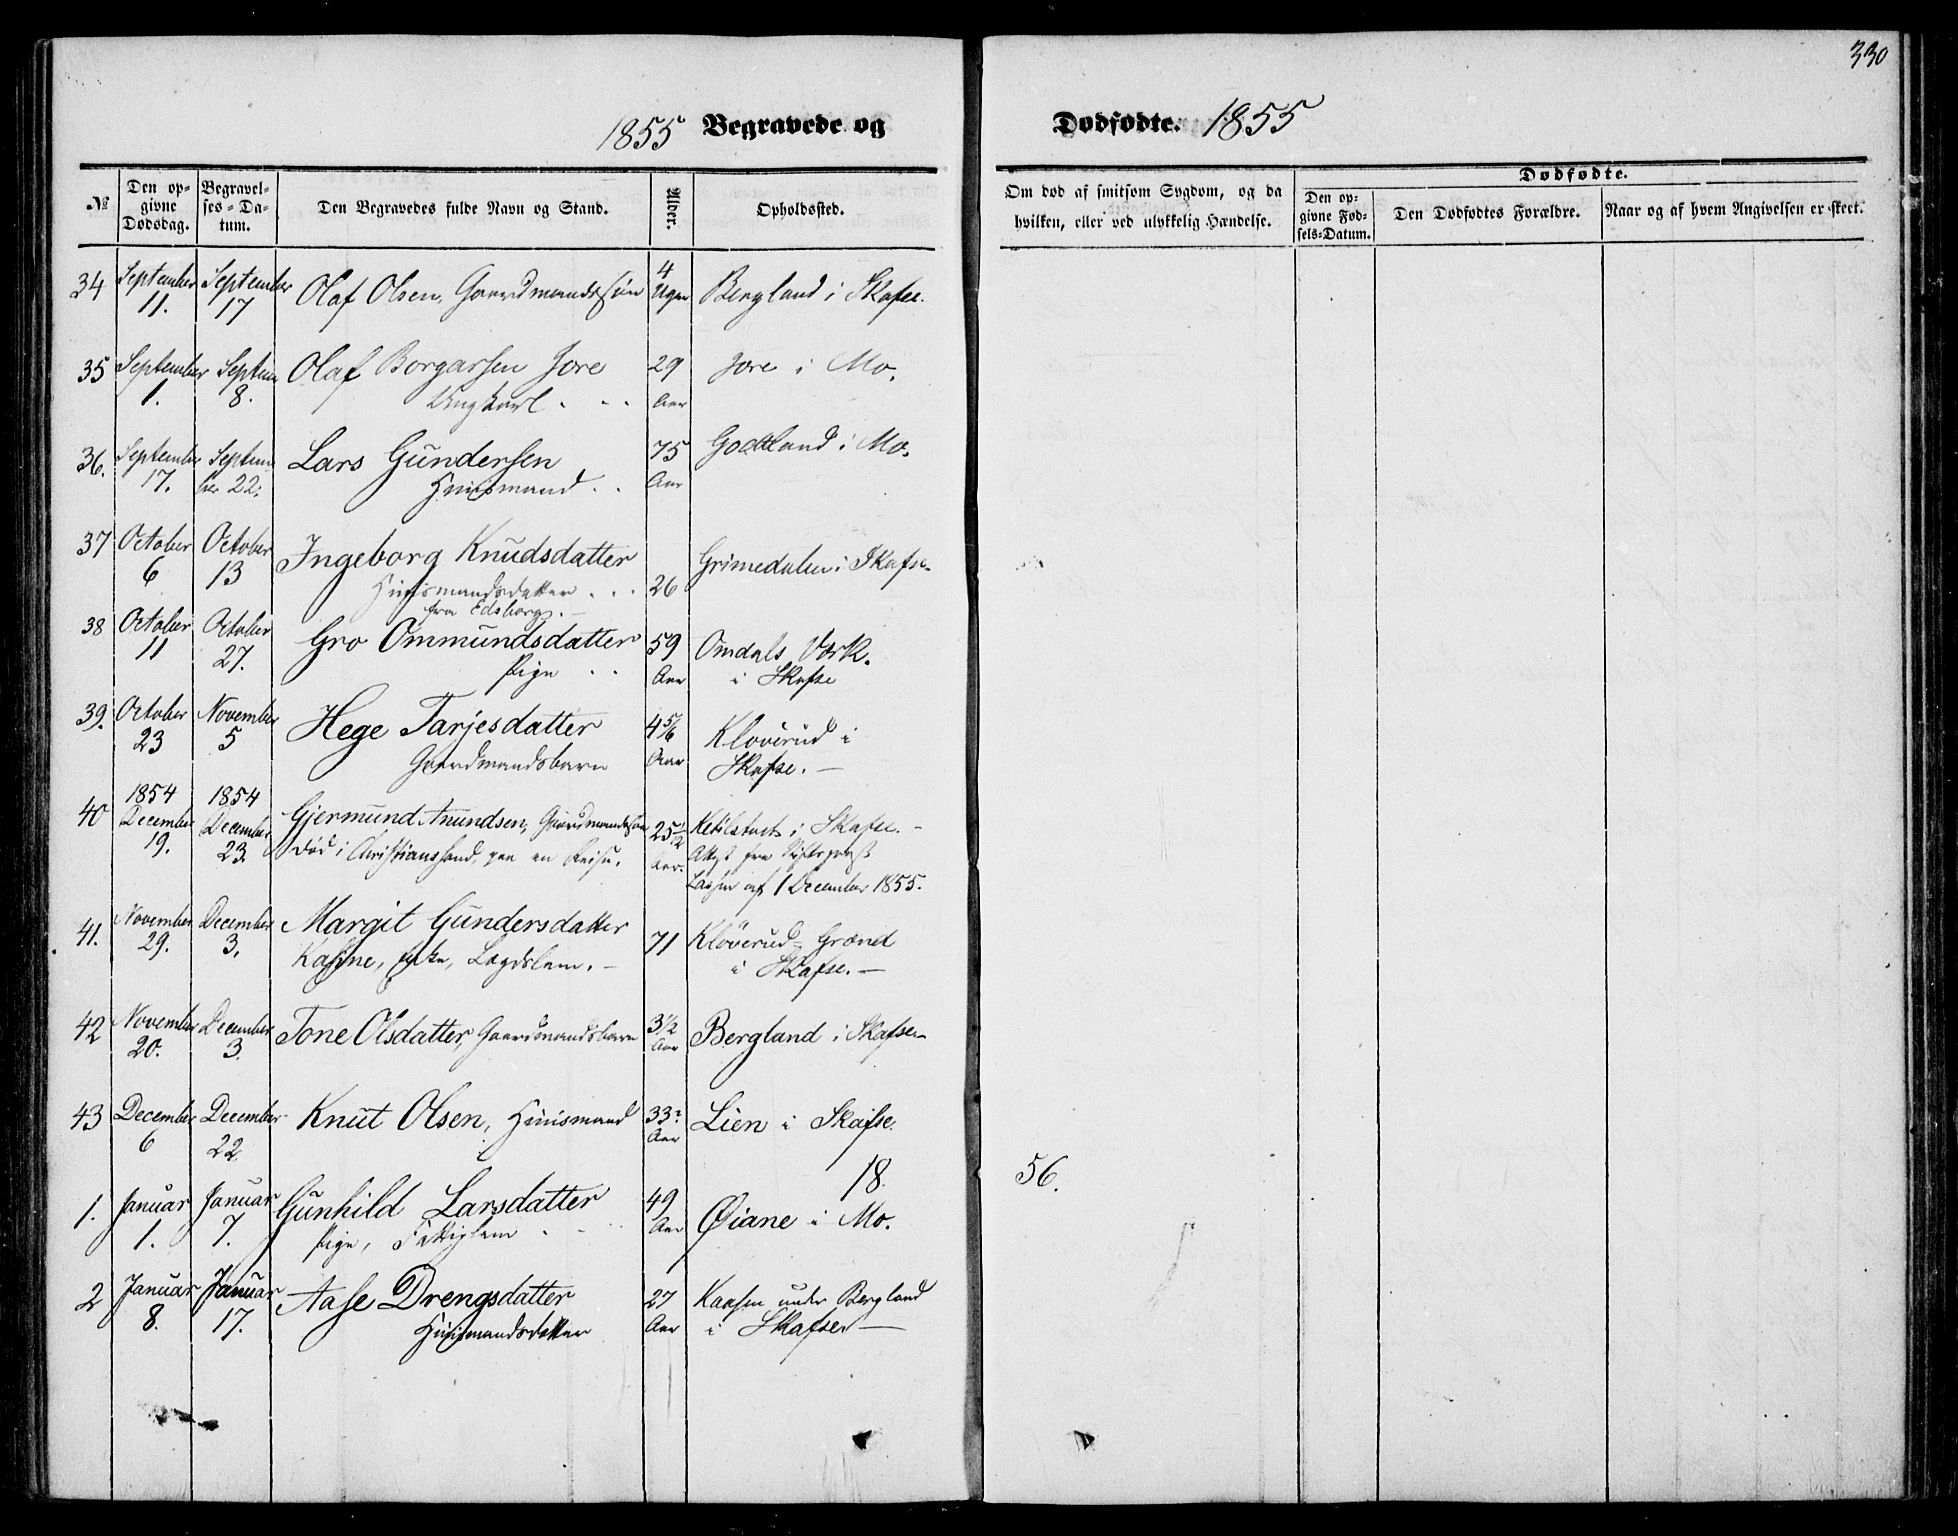 330
1855 Begravede og Dødfødte. 1855
№
Den op-
givne
Dødsdag.
Begravel-
ses-Da-
tum.
Den Begravedes fulde Navn og Stand.
Alder.
Opholdssted.
Om død af smitsom Sygdom, og da
hvilken, eller ved ulykkelig Hændelse.
Dødfødte.
Den op-
givne Fød-
sels-Datum.
Den Dødfødtes Forældre.
Naar og af hvem Angivelsen er skeet.
34 September 11. September 17 Olaf Olsen, Gaardmandssøn 4 Uger Bergland i Skafse.
35 September 1. Septem 8. Olaf Borgarssen Jore 29 Aar Jore i Mo.
Ungkarl
36. September 17. Septem
ber 22. Lars Gunderssen 75 Aar Godtland i Mo.
Huusmand
37 October 6 October 13 Ingeborg Knudsdatter 26 Grimedalen i Skafse.
Huusmandsdatter
fra Edsborg.
38 October 11 October 27. Gro Ommundsdatter 59 Aar Omdals Værk.
Pige i Skafse
39. October 23 November 5 Hege Tarjesdatter 4 5/6 Aar Kloverud i
Gaardmandsbarn Skafse.
40 1854 December 19. 1854 December 23. Gjermund Anundsen, Gaardmandssøn 25 1/2 Aar. Ketilstvet i Skafse.
død i Christianssand, paa en Reise. Attest fra
af 1 December 1855.
41. November 29. December 3. Margit Gundersdatter 71 Kløverud-Grænd
Kone, Lægdslem. i Skafse.
42 November 20. December 3. Tone Olsdatter, Gaardmandsbarn 3 1/2 Aar Bergland i Skafse
43 December 6 December 22 Knut Olsen, Huusmand 33 Aar Lien i Skafse.
18 56.
1. Januar 1. Januar 7. Gunhild Larsdatter 49 Aar Øiane i Mo.
Pige, Fattiglem
2 Januar 8. Januar 17. Aase Drengsdatter 27 Aar Kaasen under Bergland
Huusmandsdatter i Skafse